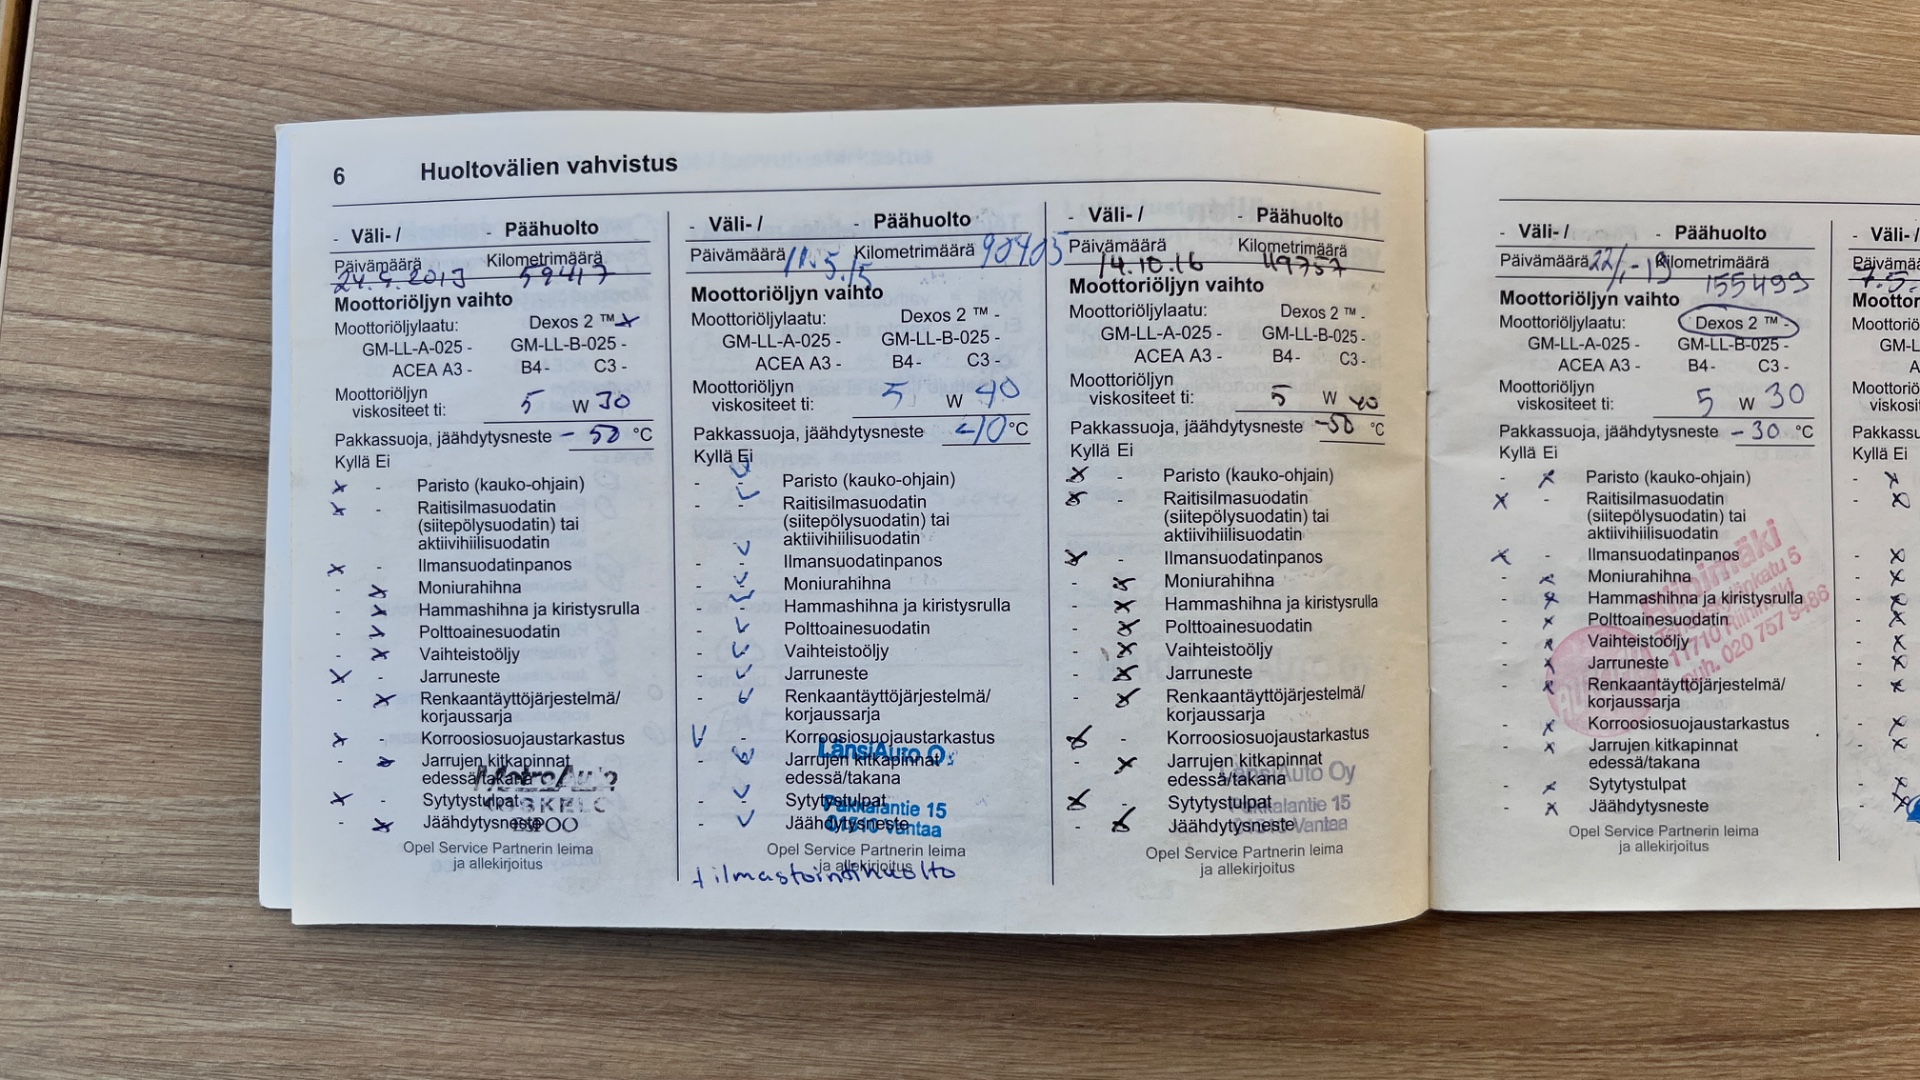 6 Huoltovälien vahvistus
- Väli- / - Päähuolto
Päivämäärä Kilometrimäärä
24.5.2013 59417
Moottoriöljyn vaihto
Moottoriöljylaatu: Dexos 2 ™ x
GM-LL-A-025 - GM-LL-B-025 -
ACEA A3 - B4- C3 -
Moottoriöljyn
viskositeet ti: 5 W 30
Pakkassuoja, jäähdytysneste - 50 °C
Kyllä Ei
x - Paristo (kauko-ohjain)
x - Raitisilmasuodatin
(siitepölysuodatin) tai
aktiivihiilisuodatin
x - Ilmansuodatinpanos
- x Moniurahihna
- x Hammashihna ja kiristysrulla
- x Polttoainesuodatin
- x Vaihteistoöljy
x - Jarruneste
- x Renkaantäyttöjärjestelmä/
korjaussarja
x - Korroosiosuojaustarkastus
- x Jarrujen kitkapinnat
edessä/takana
x - Sytytystulpat
- x Jäähdytysneste
MetroAuto
ESPOO
Opel Service Partnerin leima
ja allekirjoitus
- Väli- / - Päähuolto
Päivämäärä 11.5.15 Kilometrimäärä 90405
Moottoriöljyn vaihto
Moottoriöljylaatu: Dexos 2 ™ -
GM-LL-A-025 - GM-LL-B-025 -
ACEA A3 - B4- C3 -
Moottoriöljyn
viskositeet ti: 5 W 40
Pakkassuoja, jäähdytysneste °C
Kyllä Ei
- v Paristo (kauko-ohjain)
- v Raitisilmasuodatin
(siitepölysuodatin) tai
aktiivihiilisuodatin
- v Ilmansuodatinpanos
- v Moniurahihna
- v Hammashihna ja kiristysrulla
- v Polttoainesuodatin
- v Vaihteistoöljy
- v Jarruneste
- v Renkaantäyttöjärjestelmä/
korjaussarja
v - Korroosiosuojaustarkastus
LänsiAuto Oy
- v Jarrujen kitkapinnat
edessä/takana
- v Sytytystulpat
Pakkalantie 15
- v Jäähdytysneste
01510 Vantaa
Opel Service Partnerin leima
ja allekirjoitus
+ ilmastointihuolto
- Väli- / - Päähuolto
Päivämäärä Kilometrimäärä
14.10.16 119757
Moottoriöljyn vaihto
Moottoriöljylaatu: Dexos 2 ™ -
GM-LL-A-025 - GM-LL-B-025 -
ACEA A3 - B4- C3 -
Moottoriöljyn
viskositeet ti: 5 W 40
Pakkassuoja, jäähdytysneste -50 °C
Kyllä Ei
x - Paristo (kauko-ohjain)
x - Raitisilmasuodatin
(siitepölysuodatin) tai
aktiivihiilisuodatin
x - Ilmansuodatinpanos
- x Moniurahihna
- x Hammashihna ja kiristysrulla
- x Polttoainesuodatin
- x Vaihteistoöljy
- x Jarruneste
- x Renkaantäyttöjärjestelmä/
korjaussarja
x - Korroosiosuojaustarkastus
- x Jarrujen kitkapinnat
edessä/takana
LänsiAuto Oy
x - Sytytystulpat
Pakkalantie 15
- x Jäähdytysneste
01510 Vantaa
Opel Service Partnerin leima
ja allekirjoitus
- Väli- / - Päähuolto
Päivämäärä Kilometrimäärä
155499
Moottoriöljyn vaihto
Moottoriöljylaatu: Dexos 2 ™ -
GM-LL-A-025 - GM-LL-B-025 -
ACEA A3 - B4- C3 -
Moottoriöljyn
viskositeet ti: 5 W 30
Pakkassuoja, jäähdytysneste - 30 °C
Kyllä Ei
- x Paristo (kauko-ohjain)
x - Raitisilmasuodatin
(siitepölysuodatin) tai
aktiivihiilisuodatin
x - Ilmansuodatinpanos
- x Moniurahihna
- x Hammashihna ja kiristysrulla
- x Polttoainesuodatin
- x Vaihteistoöljy
- x Jarruneste
- x Renkaantäyttöjärjestelmä/
korjaussarja
- x Korroosiosuojaustarkastus
- x Jarrujen kitkapinnat
edessä/takana
- x Sytytystulpat
- x Jäähdytysneste
Riihimäki
11710 Riihimäki
Puh. 020 757 9486
Opel Service Partnerin leima
ja allekirjoitus
- Väli- /
7.5.
Kyllä Ei